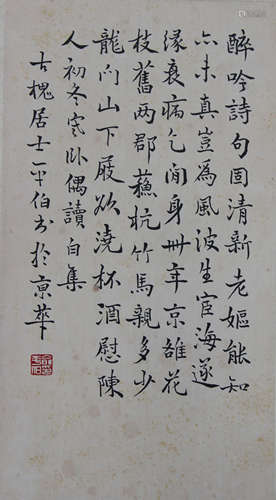 醉吟詩句固清新老嫗能知
亦未真豈為風波生宦海遂
緣衰病乞閒身卅年京雒花
枝舊兩郡蘇杭竹馬親多少
龍門山下屐欲澆杯酒慰陳
人初冬寒卧偶讀白集
古槐居士平伯书於京華